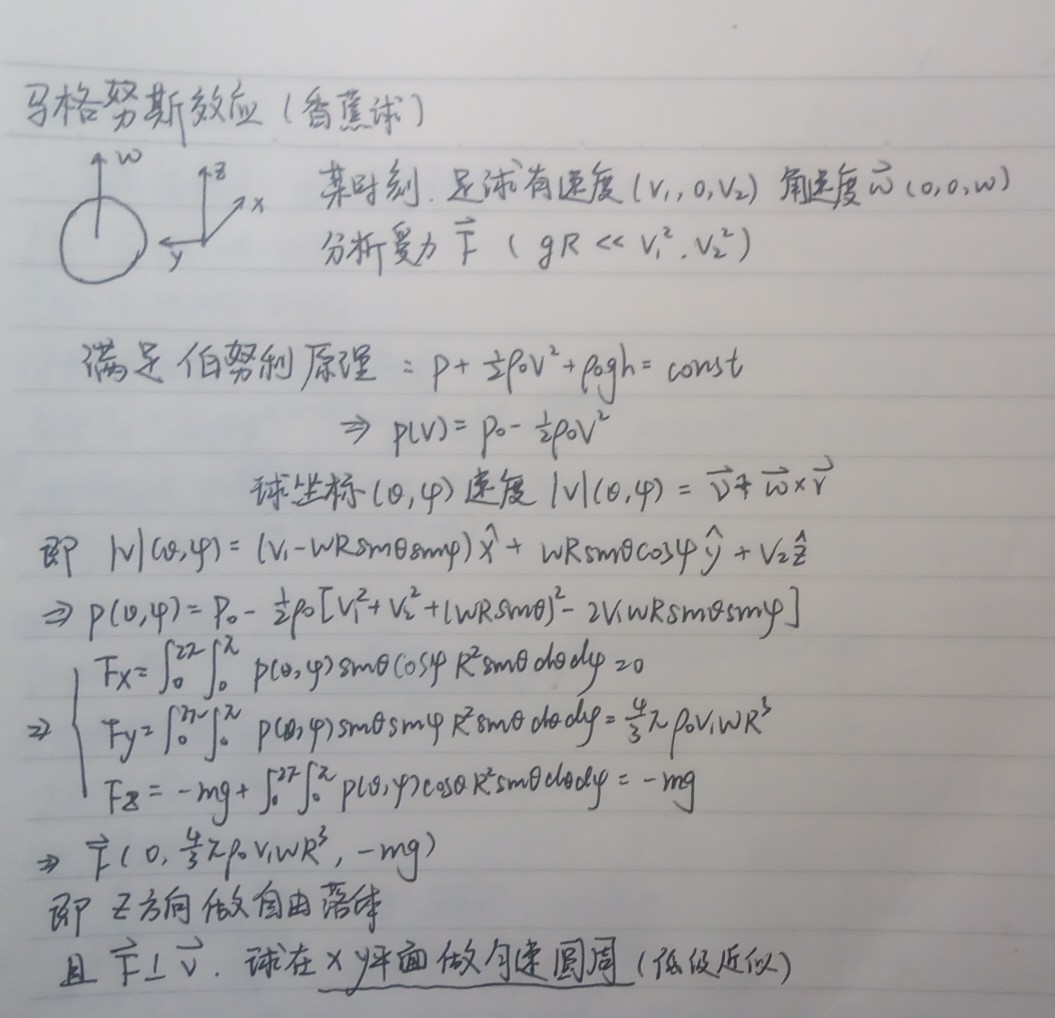 马格努斯效应(香蕉球)
ω z x y
某时刻.足球有速度(V₁,0,V₂) 角速度ω⃗(0,0,ω)
分析受力 F⃗ ( gR << V₁².V₂²)
满足伯努利原理:p+½ρ₀V²+ρ₀gh=const
⇒ p(V)=P₀-½ρ₀V²
球坐标(θ,φ)速度|V|(θ,φ)=V⃗+ω⃗×r⃗
即 |V|(θ,φ)=(V₁-ωRsinθsinφ)x̂+ωRsinθcosφŷ+V₂ẑ
⇒ p(θ,φ)=P₀-½ρ₀[V₁²+V₂²+(ωRsinθ)²-2V₁ωRsinθsinφ]
Fx=∫₀²π∫₀π p(θ,φ)sinθcosφR²sinθdθdφ=0
⇒ Fy=∫₀²π∫₀π p(θ,φ)sinθsinφR²sinθdθdφ=4/3πρ₀V₁ωR³
Fz=-mg+∫₀²π∫₀π p(θ,φ)cosθR²sinθdθdφ=-mg
⇒ F⃗(0,4/3πρ₀V₁ωR³,-mg)
即 Z方向做自由落体
且 F⃗⊥V⃗.球在xy平面做匀速圆周(低级近似)